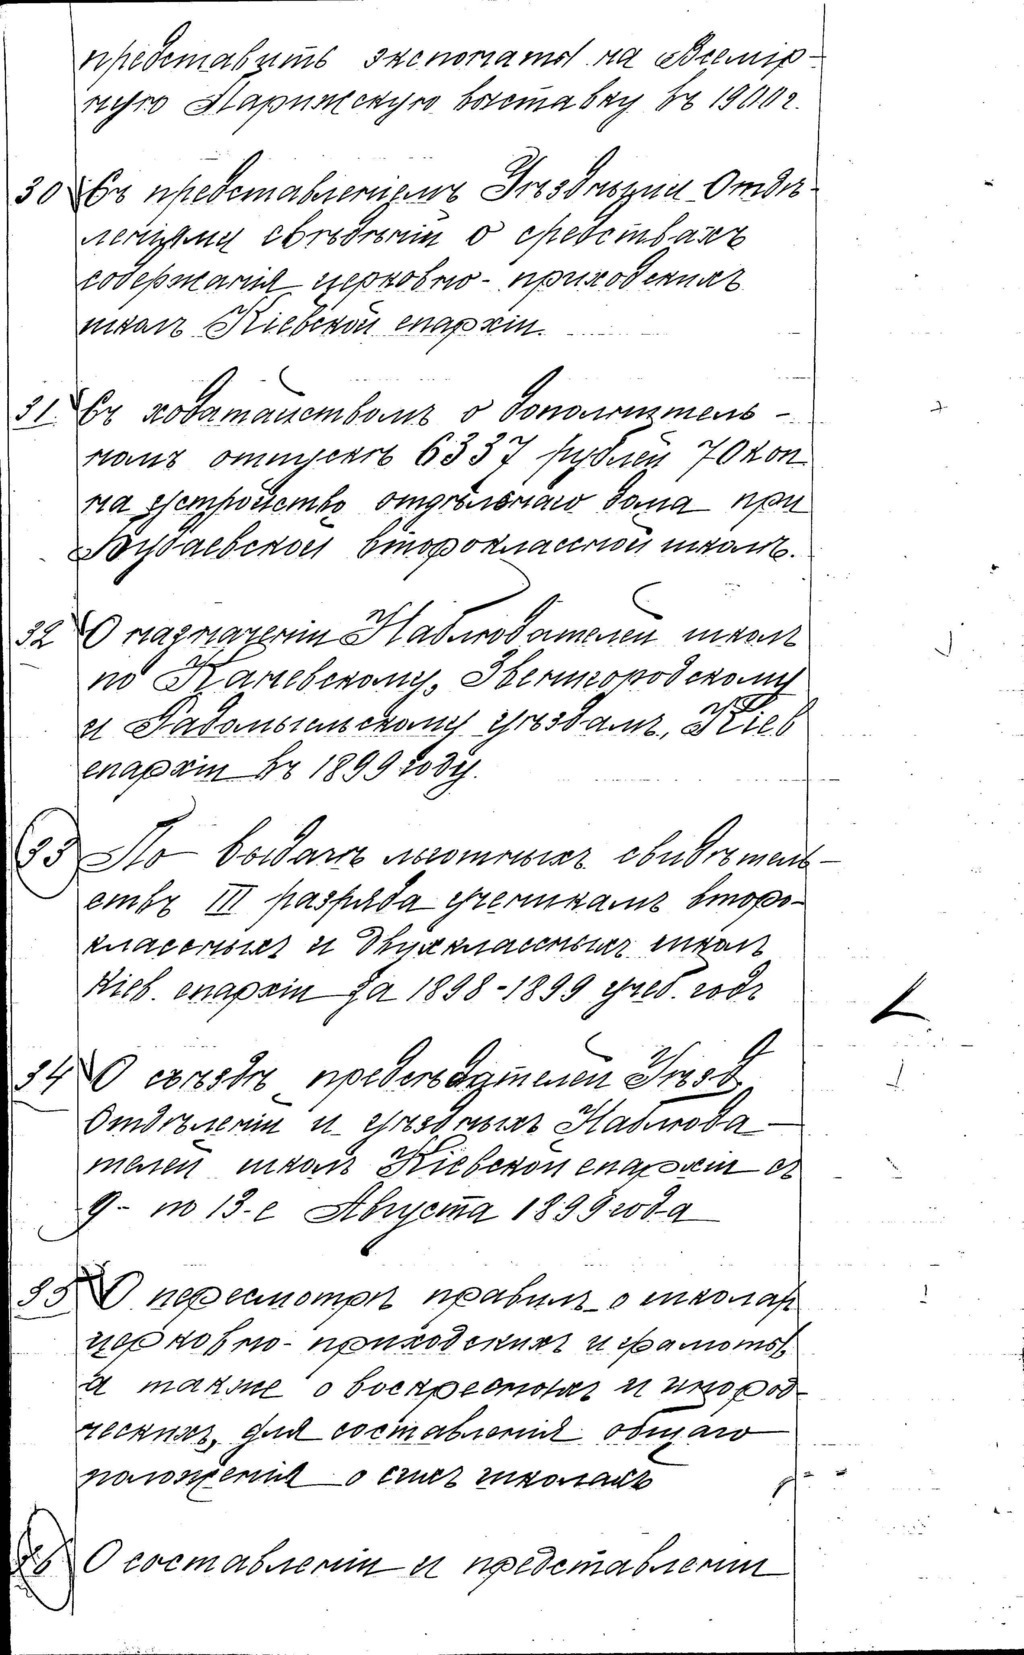 представить экспонаты на Всемір-
ную Парижскую выставку въ 1900 г.
30 Съ представленіемъ Уѣздными Отдѣ-
леніями свѣдѣній о средствахъ
содержанія церковно-приходскихъ
школъ Кіевской епархіи.
31. Съ ходатайствомъ о дополнитель-
номъ отпускѣ 6337 рублей 70 коп
на устройство отдѣльнаго дома при
Будаевской второклассной школѣ.
32 О назначеніи Наблюдателей школъ
по Каневскому, Звенигородскому
и Радомысльскому уѣздамъ, Кіев
епархіи въ 1899 году.
33 По выдачѣ льготныхъ свидѣтель-
ствъ III разряда ученикамъ второ-
классныхъ и двухклассныхъ школъ
Кіев. епархіи за 1898-1899 учеб. годъ
34 О съѣздѣ предсѣдателей Уѣзд.
Отдѣленій и уѣздныхъ Наблюда-
телей школъ Кіевской епархіи съ
9- по 13-е Августа 1899 года
35 О пересмотрѣ правилъ о школах
церковно-приходскихъ и грамоты,
а также о воскресныхъ и инород-
ческихъ, для составленія общаго
положенія о сихъ школахъ
36 О составленіи и представленіи